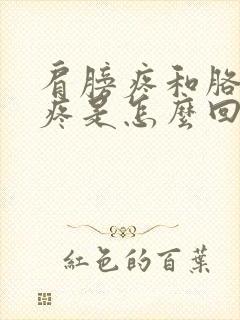 肩膀疼和胳
疼是怎麼回
紅色的百葉